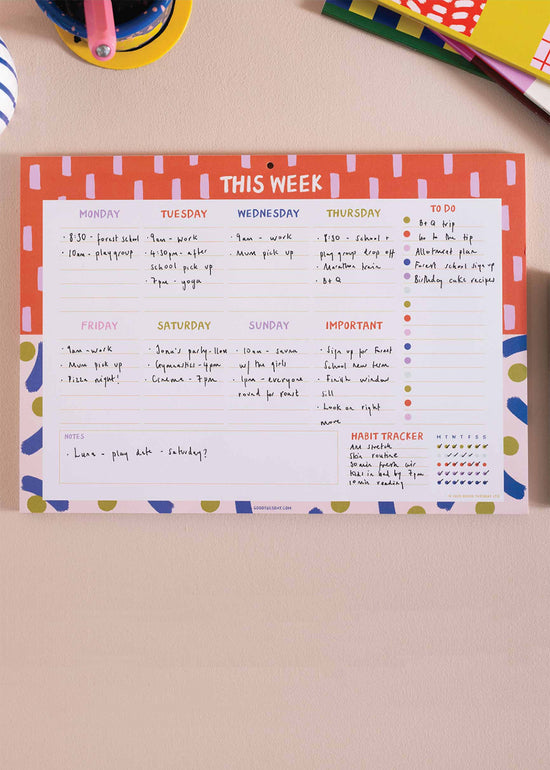 THIS WEEK
MONDAY
· 8:30 - forest school
· 10am - playgroup
TUESDAY
· 9am - work
· 4:30pm - after
school pick up
· 7pm - yoga
WEDNESDAY
· 9am - work
· Mum pick up
THURSDAY
· 8:30 - school +
play group drop off
· Marathon train
· B+Q
TO DO
B+Q trip
Go to the tip
Allotment plan
Forest school sign up
Birthday cake recipes
FRIDAY
· 9am - work
· Mum pick up
· Pizza night!
SATURDAY
· Jona's party - 11am
· Gymnastics - 4pm
· Cinema - 7pm
SUNDAY
· 10am - sauna
w/ the girls
· 1pm - everyone
round for roast
IMPORTANT
· Sign up for Forest
School new term
· Finish window
sill
· Look on right
move
NOTES
· Luna - play date - Saturday?
HABIT TRACKER M T W T F S S
AM stretch
Skin routine
30 min fresh air
Kids in bed by 7pm
10 min reading
GOODTUESDAY.COM